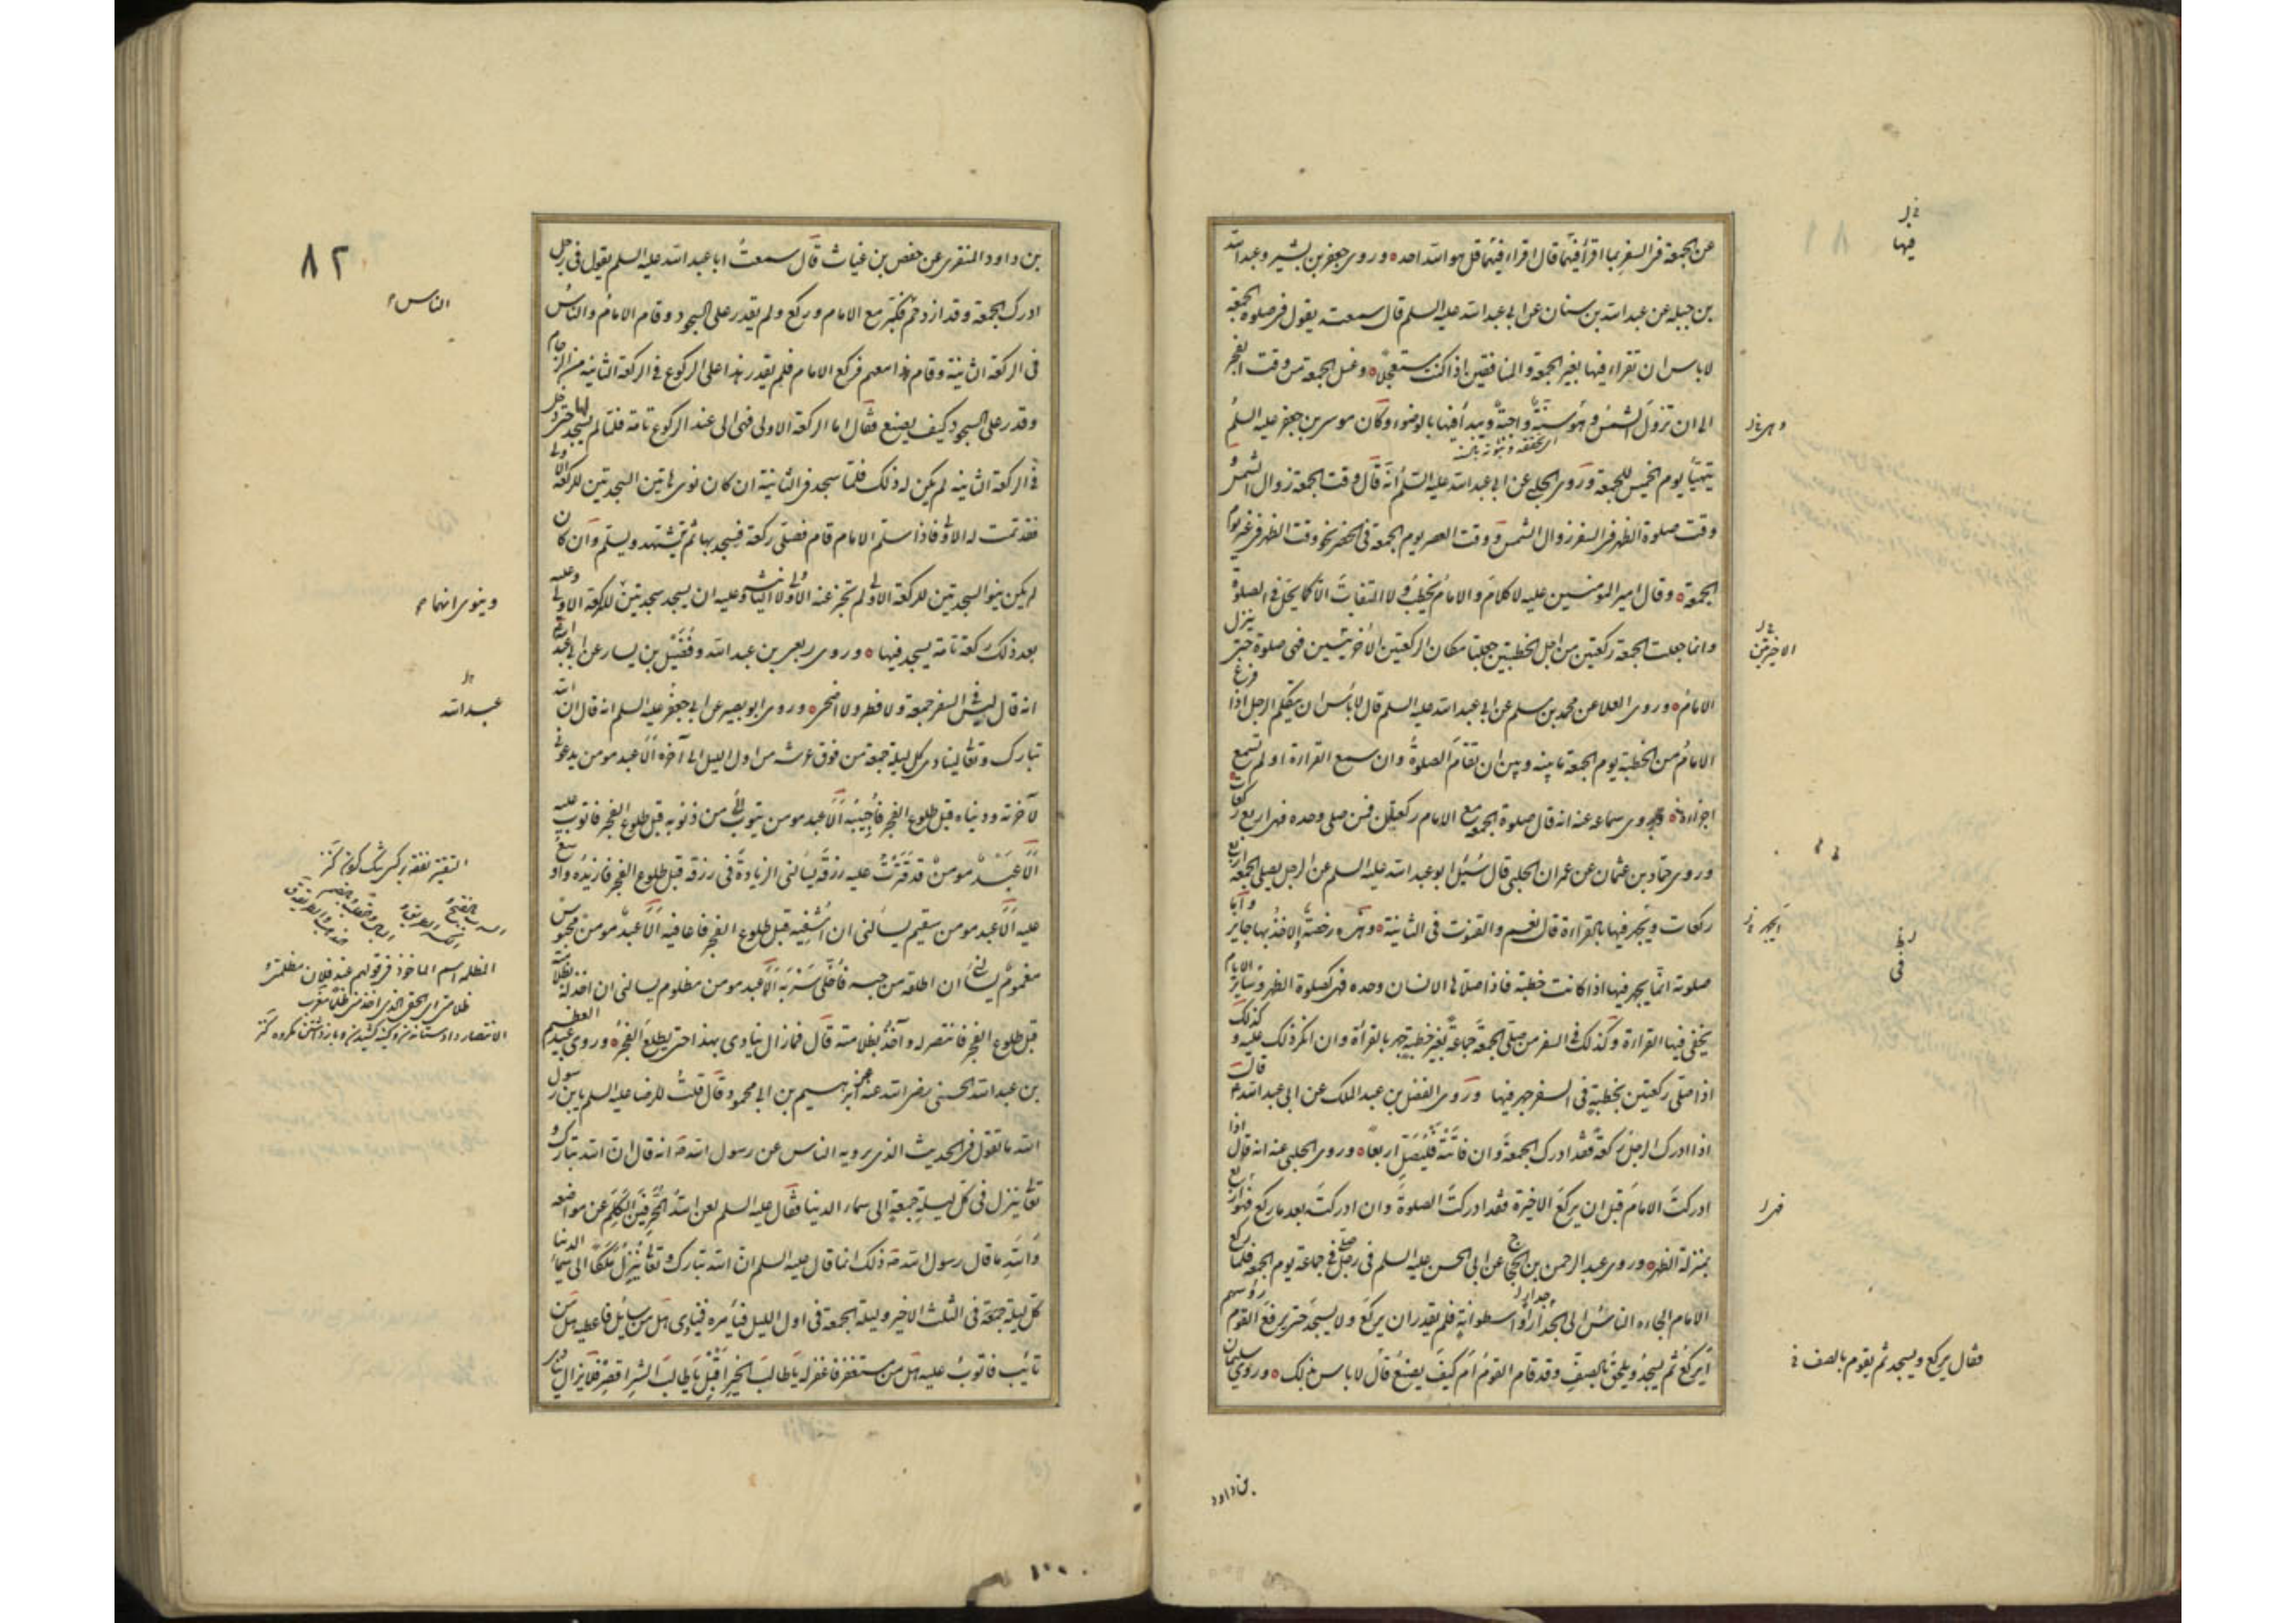 عن الجمعة فى السفر بما اقرأ فيهما قال اقراء فيهما قل هو الله احد وروى جعفر بن بشير وعبد الله
بن جبله عن عبد الله بن سنان عن ابى عبد الله عليه السلم قال سمعته يقول فى صلوة الجمعة
لا باس ان تقراء فيها بغير الجمعة والمنافقين اذا كنت مستعجلا وغسل الجمعة من وقت الفجر
الى ان تزول الشمس وهو سنة واجبة ويبدأ فيها بالوضوء وكان موسى بن جعفر عليه السلم
يتهيأ يوم الخميس للجمعة وروى الحلبى عن ابى عبد الله عليه السلم انه قال وقت الجمعة زوال الشمس و
وقت صلوة الظهر فى السفر زوال الشمس ووقت العصر يوم الجمعة فى الحضر نحو وقت الظهر فى غير يوم
الجمعة وقال امير المومنين عليه لا كلام والامام يخطب ولا التفات الا كما يحل فى الصلوة
وانما جعلت الجمعة ركعتين من اجل الخطبتين جعلتا مكان الركعتين الاخريتين فهى صلوة حتى ينزل
الامام وروى العلا عن محمد بن مسلم عن ابى عبد الله عليه السلم قال لا باس ان يتكلم الرجل اذا فرغ
الامام من الخطبة يوم الجمعة ما بينه وبين ان تقام الصلوة وان سمع القراءة او لم تسمع
اجزاءه وروى سماعه عنه انه قال صلوة الجمعة مع الامام ركعتان فمن صلى وحده فهى اربع ركعات
وروى حماد بن عثمان عن عمران الحلبى قال سئل ابو عبد الله عليه السلم عن الرجل يصلى الجمعة اربع
ركعات ويجهر فيها بالقراءة قال نعم والقنوت فى الثانية وهذه رخصة الاخذ بها جايز
صلوته انما يجهر فيها اذا كانت خطبة فاذا صلاها الانسان وحده فهى كصلوة الظهر فى ساير الايام
يخفى فيها القراءة وكذلك فى السفر من صلى الجمعة جماعة بغير خطبة جهر بالقراءة وان انكر ذلك عليه و كذلك
اذا صلى ركعتين بخطبة فى السفر جهر فيها وروى الفضل بن عبد الملك عن ابى عبد الله ع قال
اذا ادرك الرجل ركعة فقد ادرك الجمعة وان فاتته فليصل اربعا وروى الحلبى عنه انه قال اذا
ادركت الامام قبل ان يركع الاخيرة فقد ادركت الصلوة وان ادركت بعد ما ركع فهو اربع
بمنزلة الظهر وروى عبد الرحمن بن الحجاج عن ابى الحسن عليه السلم فى رجل صلى فى جماعة يوم الجمعة فلما ركع
الامام الجاءه الناس الى جدار او اسطوانة فلم يقدر ان يركع ولا يسجد حتى يرفع القوم رؤسهم
ايركع ثم يسجد ويلحق بالصف وقد قام القوم ام كيف يصنع قال لا باس بذلك وروى سليمان
فيها
الاخيرتين
فقال يركع ويسجد ثم يقوم بالصف
بن داود
بن داود المنقرى عن حفص بن غياث قال سمعت ابا عبد الله عليه السلم يقول فى رجل
ادرك الجمعة وقد ازدحم فكبر مع الامام وركع ولم يقدر على السجود وقام الامام والناس
فى الركعة الثانية وقام هذا معهم فركع الامام فلم يقدر هذا على الركوع فى الركعة الثانية من الزحام
وقدر على السجود كيف يصنع فقال اما الركعة الاولى فهى الى عند الركوع تامة فلما لم يسجد لها حتى دخل
فى الركعة الثانية لم يكن له ذلك فلما سجد فى الثانية ان كان نوى هاتين السجدتين للركعة الاولى
فقد تمت له الاولى فاذا سلم الامام قام فصلى ركعة فيسجد بها ثم يتشهد ويسلم وان كان
لم يكن ينو السجدتين للركعة الاولى لم تجز عنه الاولى ولا الثانية وعليه ان يسجد سجدتين للركعة الاولى وعليه
بعد ذلك ركعة تامة يسجد فيها وروى ربعى بن عبد الله وفضيل بن يسار عن ابى عبد الله
انه قال ليس فى السفر جمعة ولا فطر ولا اضحى وروى ابو بصير عن ابى جعفر عليه السلم انه قال ان الله
تبارك وتعالى لينادى كل ليلة جمعة من فوق عرشه من اول الليل الى آخره الا عبد مومن يدعونى
لآخرته ودنياه قبل طلوع الفجر فاجيبه الا عبد مومن يتوب الى من ذنوبه قبل طلوع الفجر فاتوب عليه
الا عبد مومن قد قترت عليه رزقه يسالنى الزيادة فى رزقه قبل طلوع الفجر فازيده واوسع
عليه الا عبد مومن سقيم يسالنى ان اشفيه قبل طلوع الفجر فاعافيه الا عبد مومن محبوس
مغموم يسالنى ان اطلقه من حبسه فاخلى سربه الا عبد مومن مظلوم يسالنى ان اخذ له بظلامته
قبل طلوع الفجر فانتصر له وآخذ بظلامته قال فما زال ينادى بهذا حتى يطلع الفجر وروى عبد العظيم
بن عبد الله الحسنى رضى الله عنه عن ابرهيم بن ابى محمود قال قلت للرضا عليه السلم يابن رسول
الله ما تقول فى الحديث الذى يرويه الناس عن رسول الله ص انه قال ان الله تبارك و
تعالى ينزل فى كل ليلة جمعة الى سماء الدنيا فقال عليه السلم لعن الله المحرفين الكلم عن مواضعه
والله ما قال رسول الله ص ذلك انما قال عليه السلم ان الله تبارك وتعالى ينزل ملكا الى سماء الدنيا
كل ليلة جمعة فى الثلث الاخير وليلة الجمعة فى اول الليل فيأمره فينادى هل من سايل فاعطيه هل من
تائب فاتوب عليه هل من مستغفر فاغفر له يا طالب الخير اقبل يا طالب الشر اقصر فلا يزال ينادى
٨٢
الناس
وينوى انهما
عبد الله